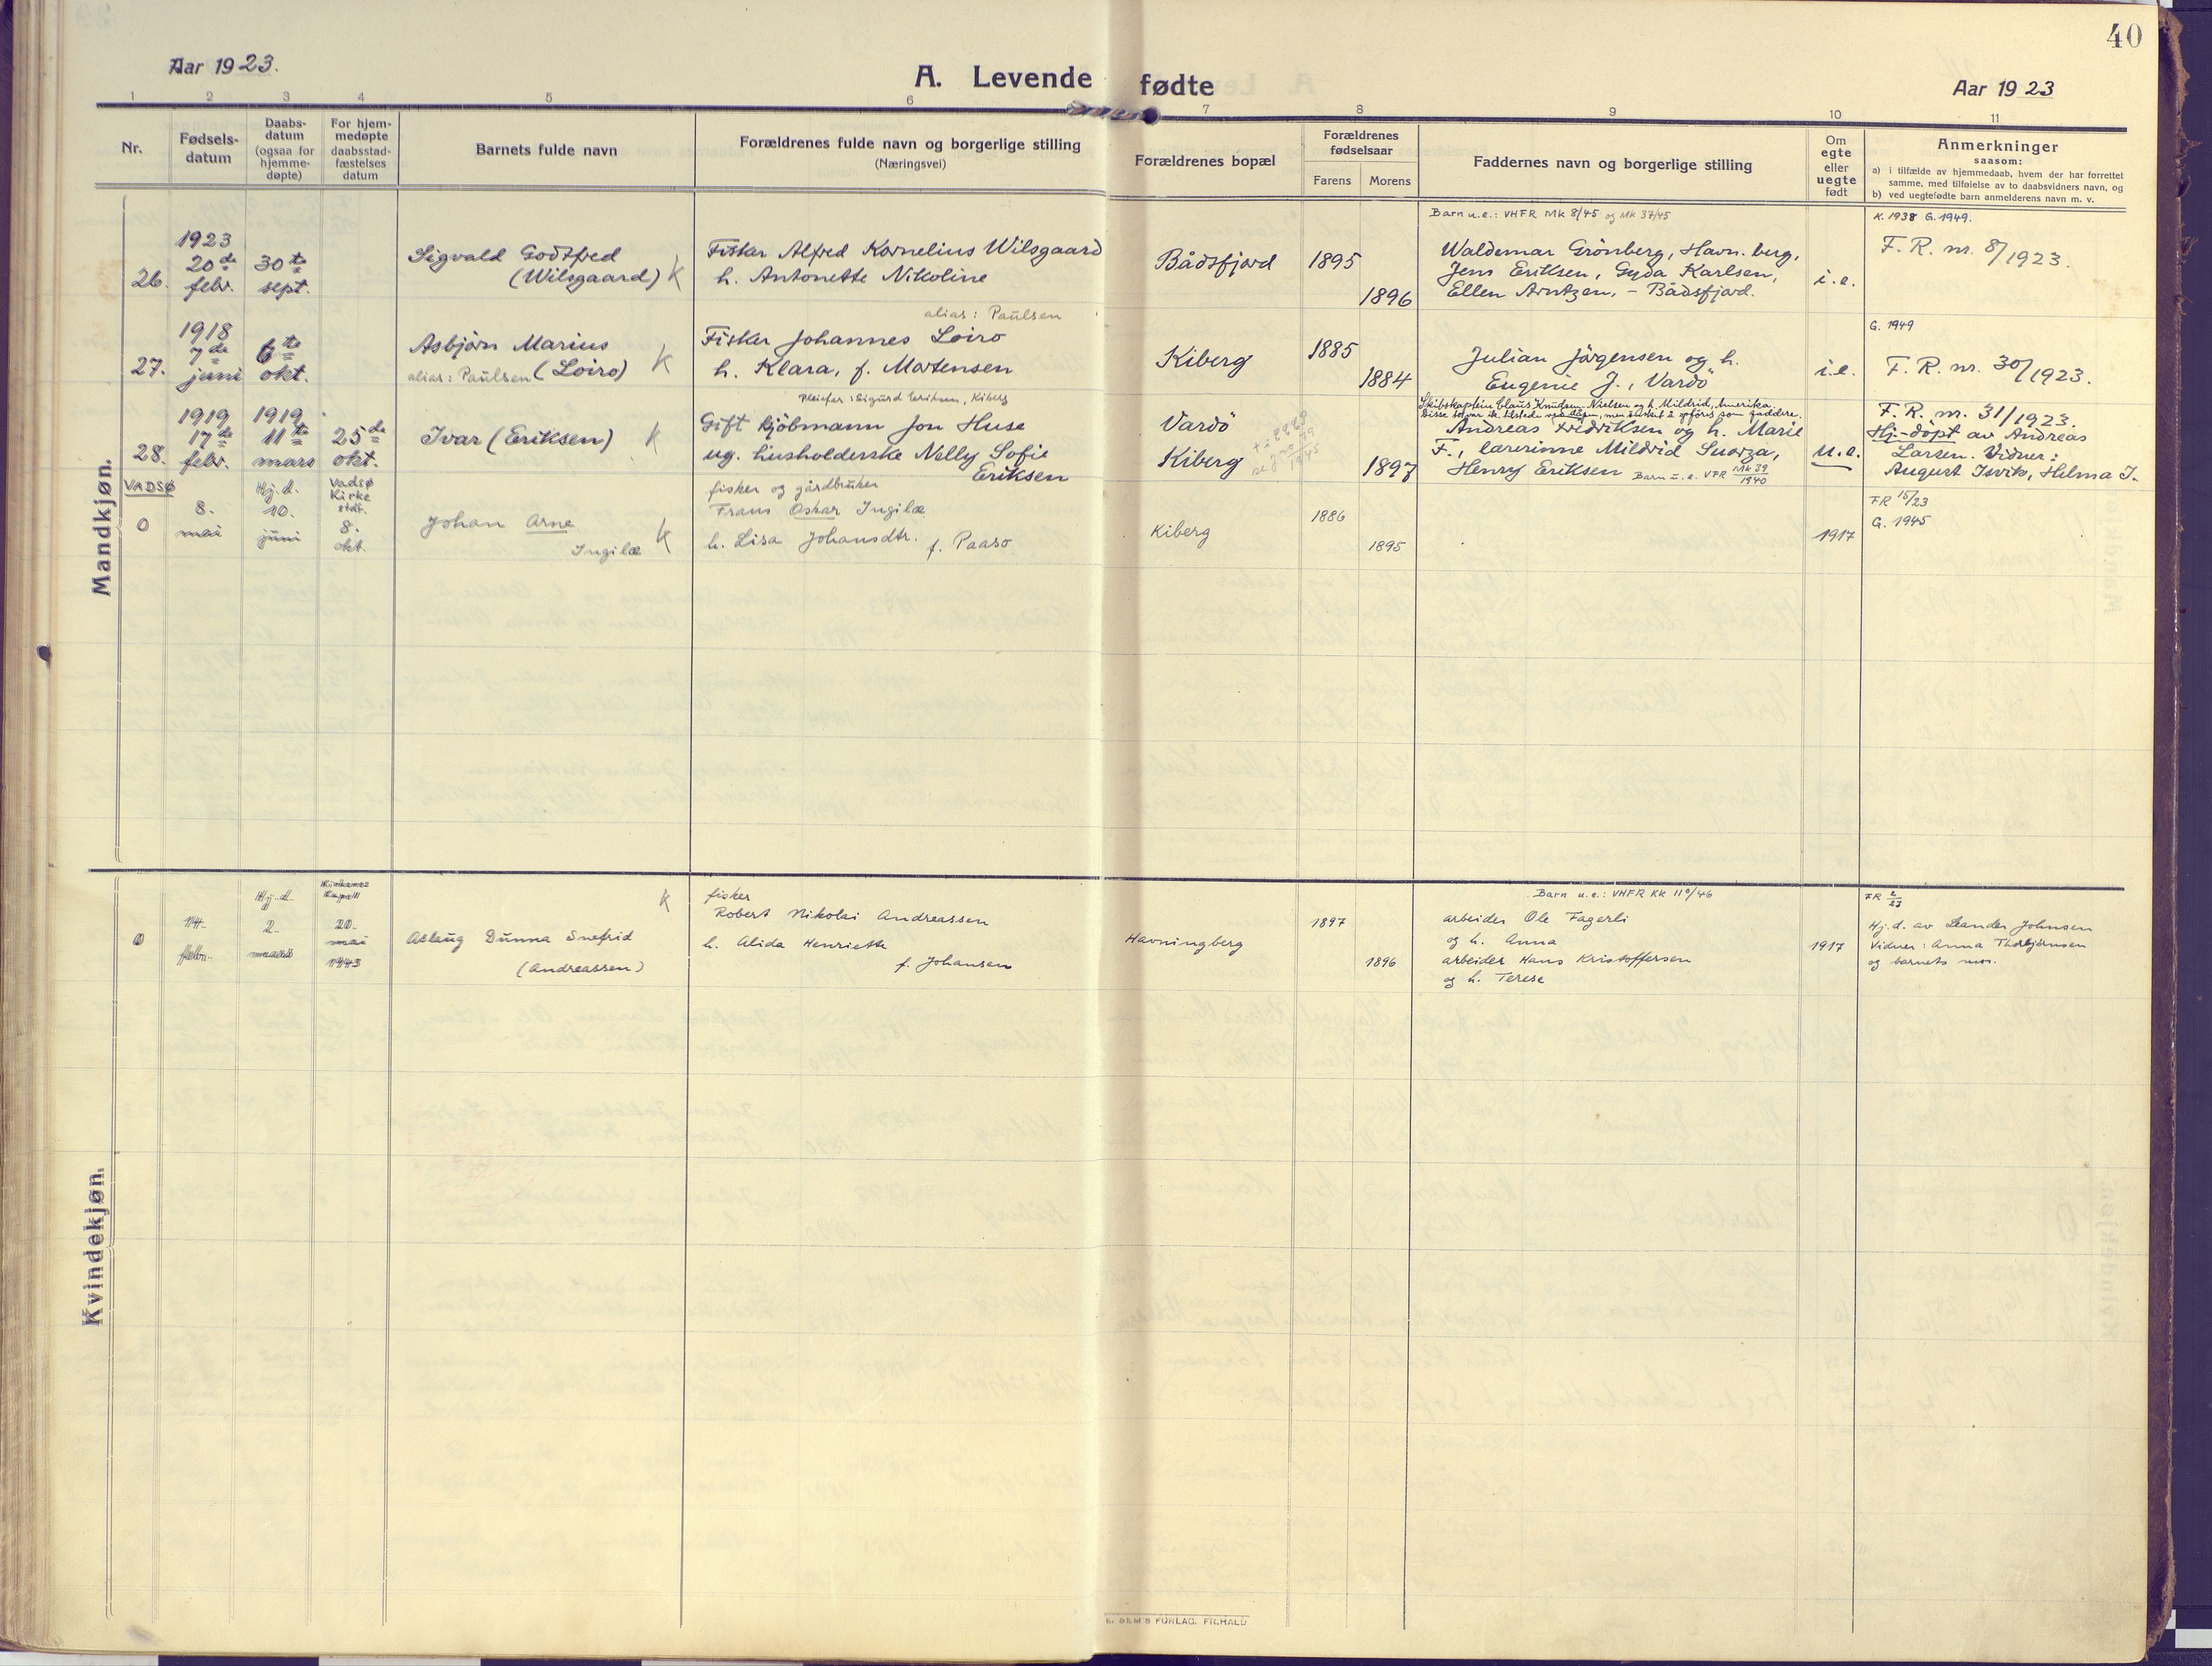 40
Aar 1923.
A. Levende fødte
Aar 1923
1 2 3 4 5 6 7 8 9 10 11
Nr.
Fødsels-
datum
Daabs-
datum
(ogsaa for
hjemme-
døpte)
For hjem-
medøpte
daabsstad-
fæstelses
datum
Barnets fulde navn
Forældrenes fulde navn og borgerlige stilling
(Næringsvei)
Forældrenes bopæl
Forældrenes
fødselsaar
Farens Morens
Faddernes navn og borgerlige stilling
Om
egte
eller
uegte
født
Anmerkninger
saasom:
a) i tilfælde av hjemmedaab, hvem der har forrettet
samme, med tilføielse av to daabsvidners navn, og
b) ved uegtefødte barn anmelderens navn m. v.
Mandkjøn.
26.
1923
20de
febr.
30te
sept.
Sigvald Godtfred
(Wilsgaard) K
Fisker Alfred Kornelius Wilsgaard
h. Antonette Nikoline
Bådsfjord
1895
1896
Barn u.e.: VHFR Mk 8/45 og Mk 37/45
Waldemar Grönberg, Havn. berg,
Jens Eriksen, Gyda Karlsen,
Ellen Arntzen, - Bådsfjord.
i.e.
K. 1938 G. 1949.
F. R. nr. 8/1923.
27.
1918
7de
juni
6te
okt.
Asbjörn Marius
alias: Paulsen (Loiro) K
alias: Paulsen
Fisker Johannes Loiro
h. Klara, f. Mortensen
Kiberg
1885
1884
Julian Jörgensen og h.
Eugenie J., Vardö
i.e.
G. 1949
F. R. nr. 30/1923.
28.
1919
17de
febr.
1919
11te
mars
25de
okt.
Ivar (Eriksen) K
Pleiefar: Sigurd Eriksen, Kiberg
Gift kjöbmann Jon Huse
ug. husholderske Nelly Sofie
Eriksen
Vardö
Kiberg
1897
Skibskaptein Claus Knudsen-Nielsen og h. Mildrid, Amerika.
Andreas Fredriksen og h. Marie
F., lærerinne Mildrid Suorza,
Henry Eriksen Barn u.e. VFR Mk 39/1940
u.e.
F. R. nr. 31/1923.
Hj-döpt av Andreas
Larsen. Vidner:
August Isvik, Helma I.
VADSØ
0
8.
mai
Hj.d.
10.
juni
Vadsø
Kirke
stdf.
8.
okt.
Johan Arne
Ingilæ K
fisker og gårdbruker
Frans Oskar Ingilæ
h. Lisa Johansdtr. f. Paaso
Kiberg
1886
1895
1917
FR 15/23
G. 1945
Kvindekjøn.
0
14.
febr.
Hj.d.
2.
mars
20.
mai
1943
Aslaug Dunna Snefrid
(Andreassen)
K
fisker
Robert Nikolai Andreassen
h. Alida Henriette
f. Johansen
Havningberg
1897
1896
Barn u.e.: VHFR KK 11/46
arbeider Ole Fagerli
og h. Anna
arbeider Hans Kristoffersen
og h. Terese
1917
FR 2/23
Hj.d. av Leander Johnsen
Vidner: Anna Thorbjörnsen
og barnets mor.
E. SEM'S FORLAG. FR.HALD